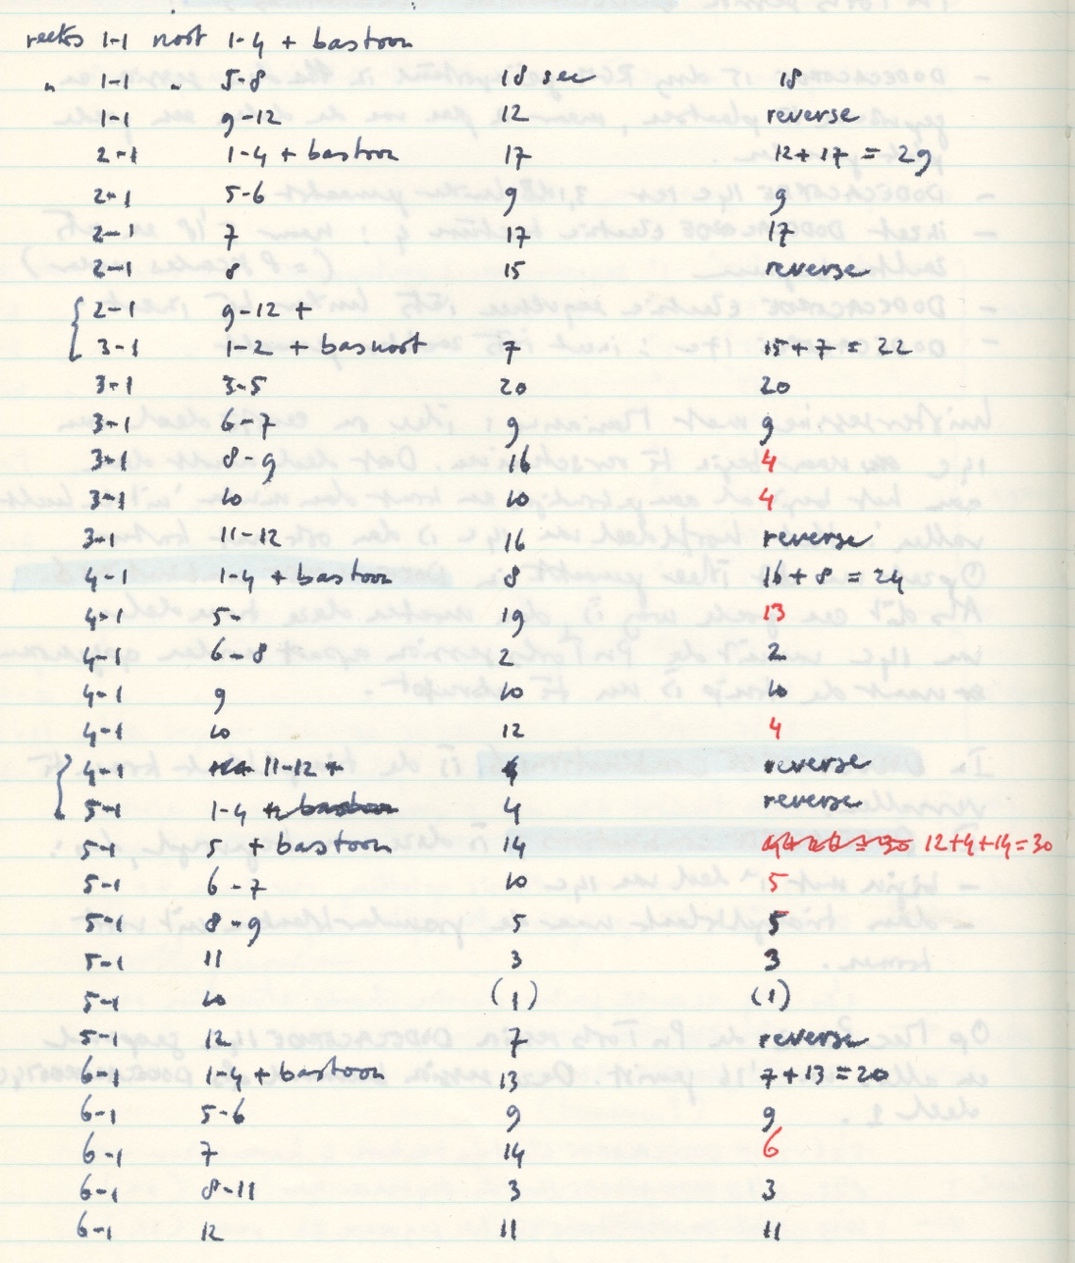 reeks 1-1 noot 1-4 + bastoon
" 1-1 " 5-8 18 sec 18
1-1 9-12 12 reverse
2-1 1-4 + bastoon 17 12+17 = 29
2-1 5-6 9 9
2-1 7 17 17
2-1 8 15 reverse
2-1 9-12 +
3-1 1-2 + basnoot 7 15+7 = 22
3-1 3-5 20 20
3-1 6-7 9 9
3-1 8-9 16 4
3-1 10 10 4
3-1 11-12 16 reverse
4-1 1-4 + bastoon 8 16+8 = 24
4-1 5- 19 13
4-1 6-8 2 2
4-1 9 10 10
4-1 10 12 4
4-1 11-12 + reverse
5-1 1-4 + bastoon 4 reverse
5-1 5 + bastoon 14 12+4+14=30
5-1 6-7 10 5
5-1 8-9 5 5
5-1 11 3 3
5-1 10 (1) (1)
5-1 12 7 reverse
6-1 1-4 + bastoon 13 7+13=20
6-1 5-6 9 9
6-1 7 14 6
6-1 8-11 3 3
6-1 12 11 11